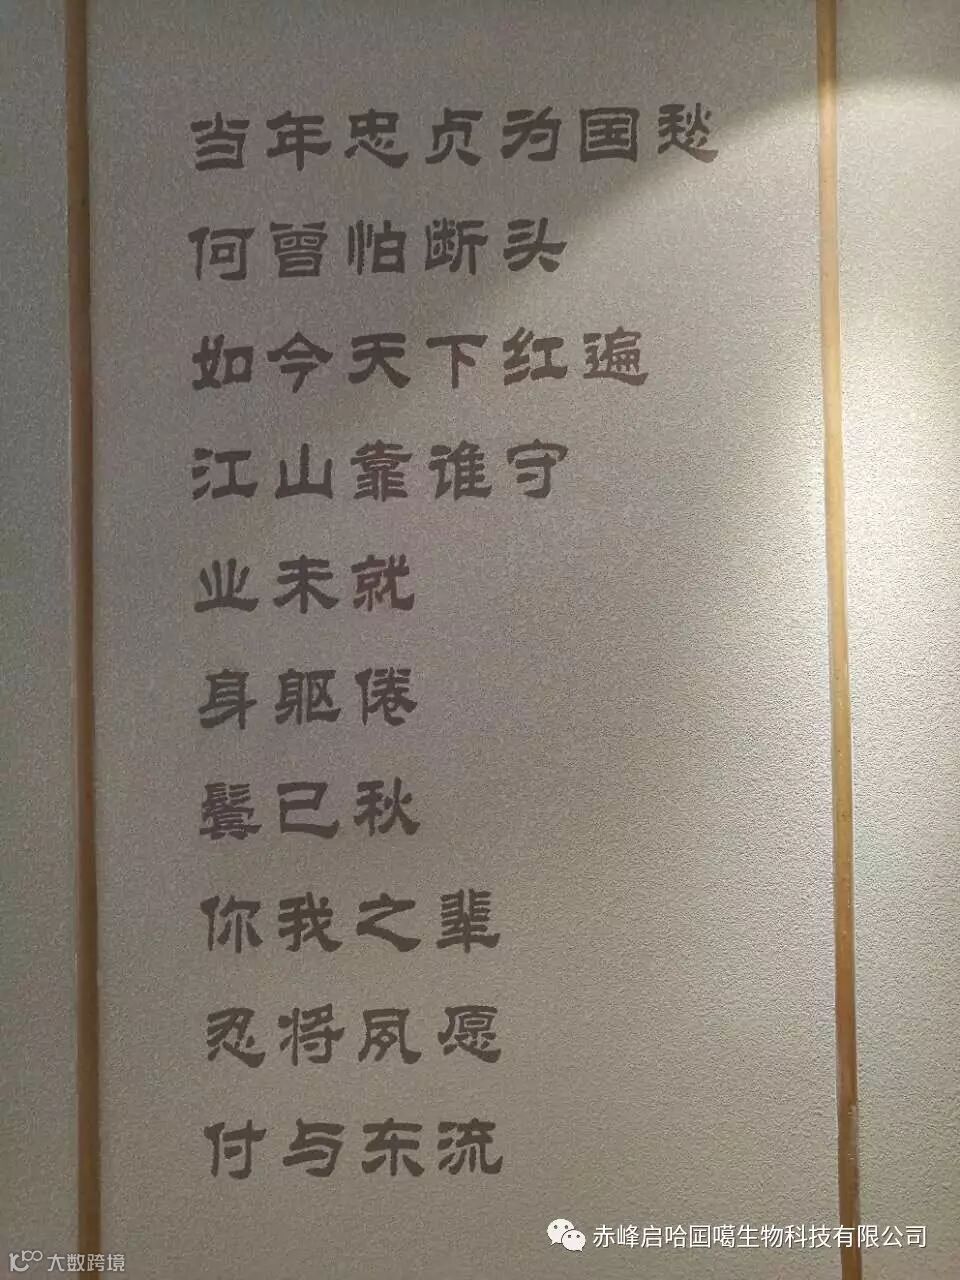 当年忠贞为国愁
何曾怕断头
如今天下红遍
江山靠谁守
业未就
身躯倦
鬓已秋
你我之辈
忍将夙愿
付与东流
赤峰启哈园噶生物科技有限公司
大数跨境